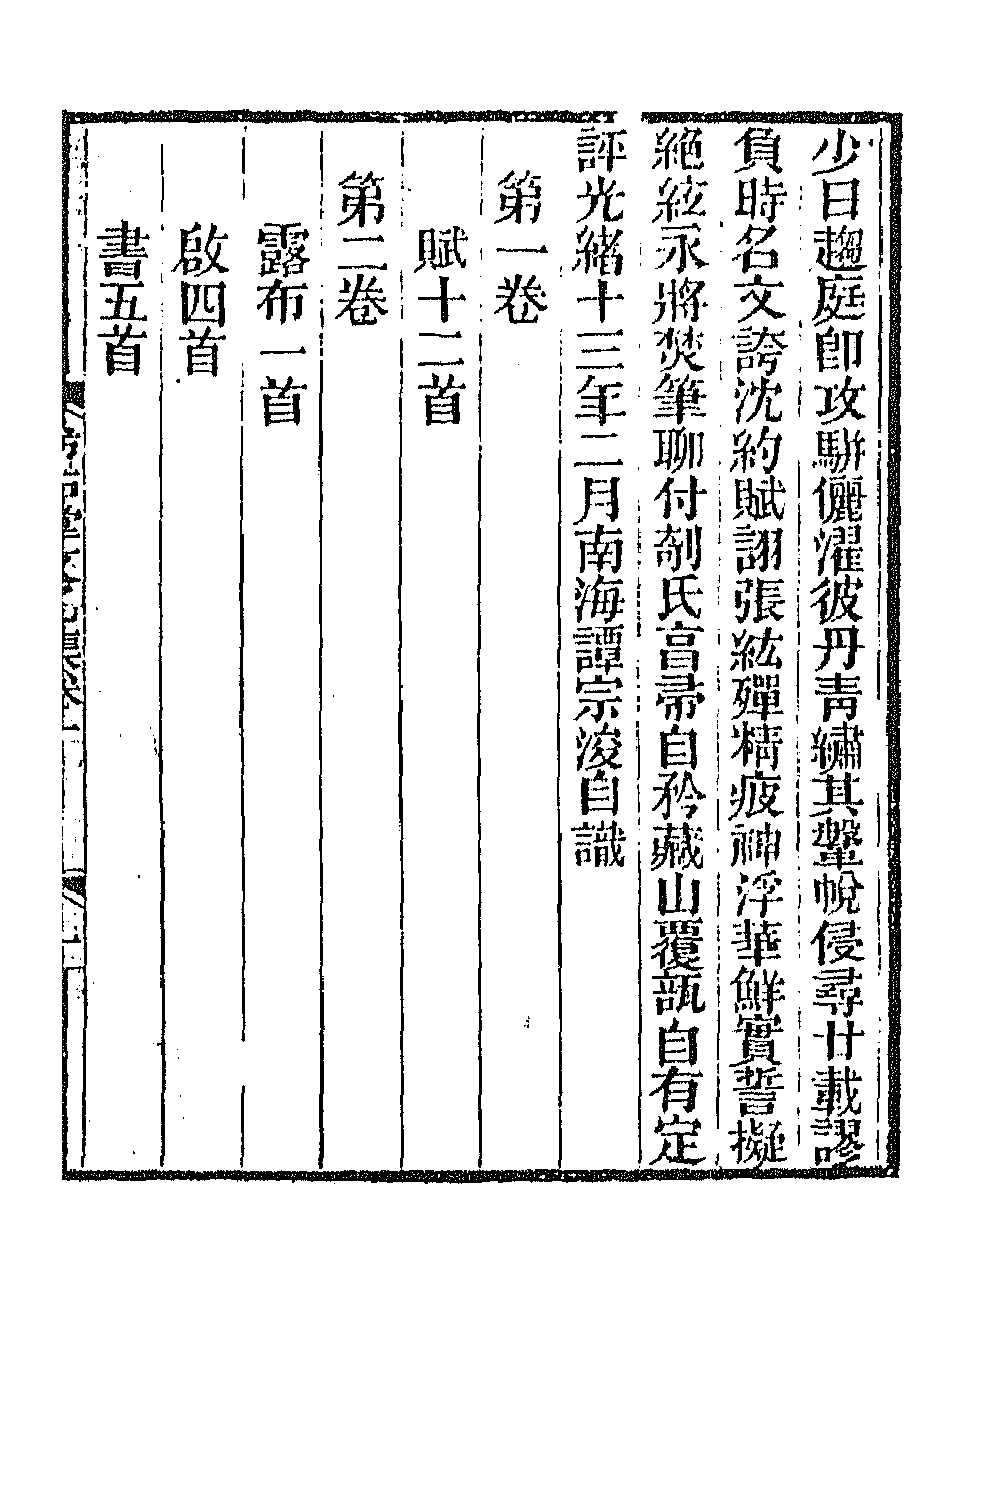 少日趨庭卽攻駢儷濯彼丹靑繡其鞶帨侵尋廿載謬
負時名文誇沈約賦詡張紘殫精疲神浮華鮮實誓擬
絕絃永將焚筆聊付剞氏亯帚自矜藏山覆瓿自有定
評光緒十三年二月南海譚宗浚自識
第一卷
賦十二首
第二卷
露布一首
啟四首
書五首